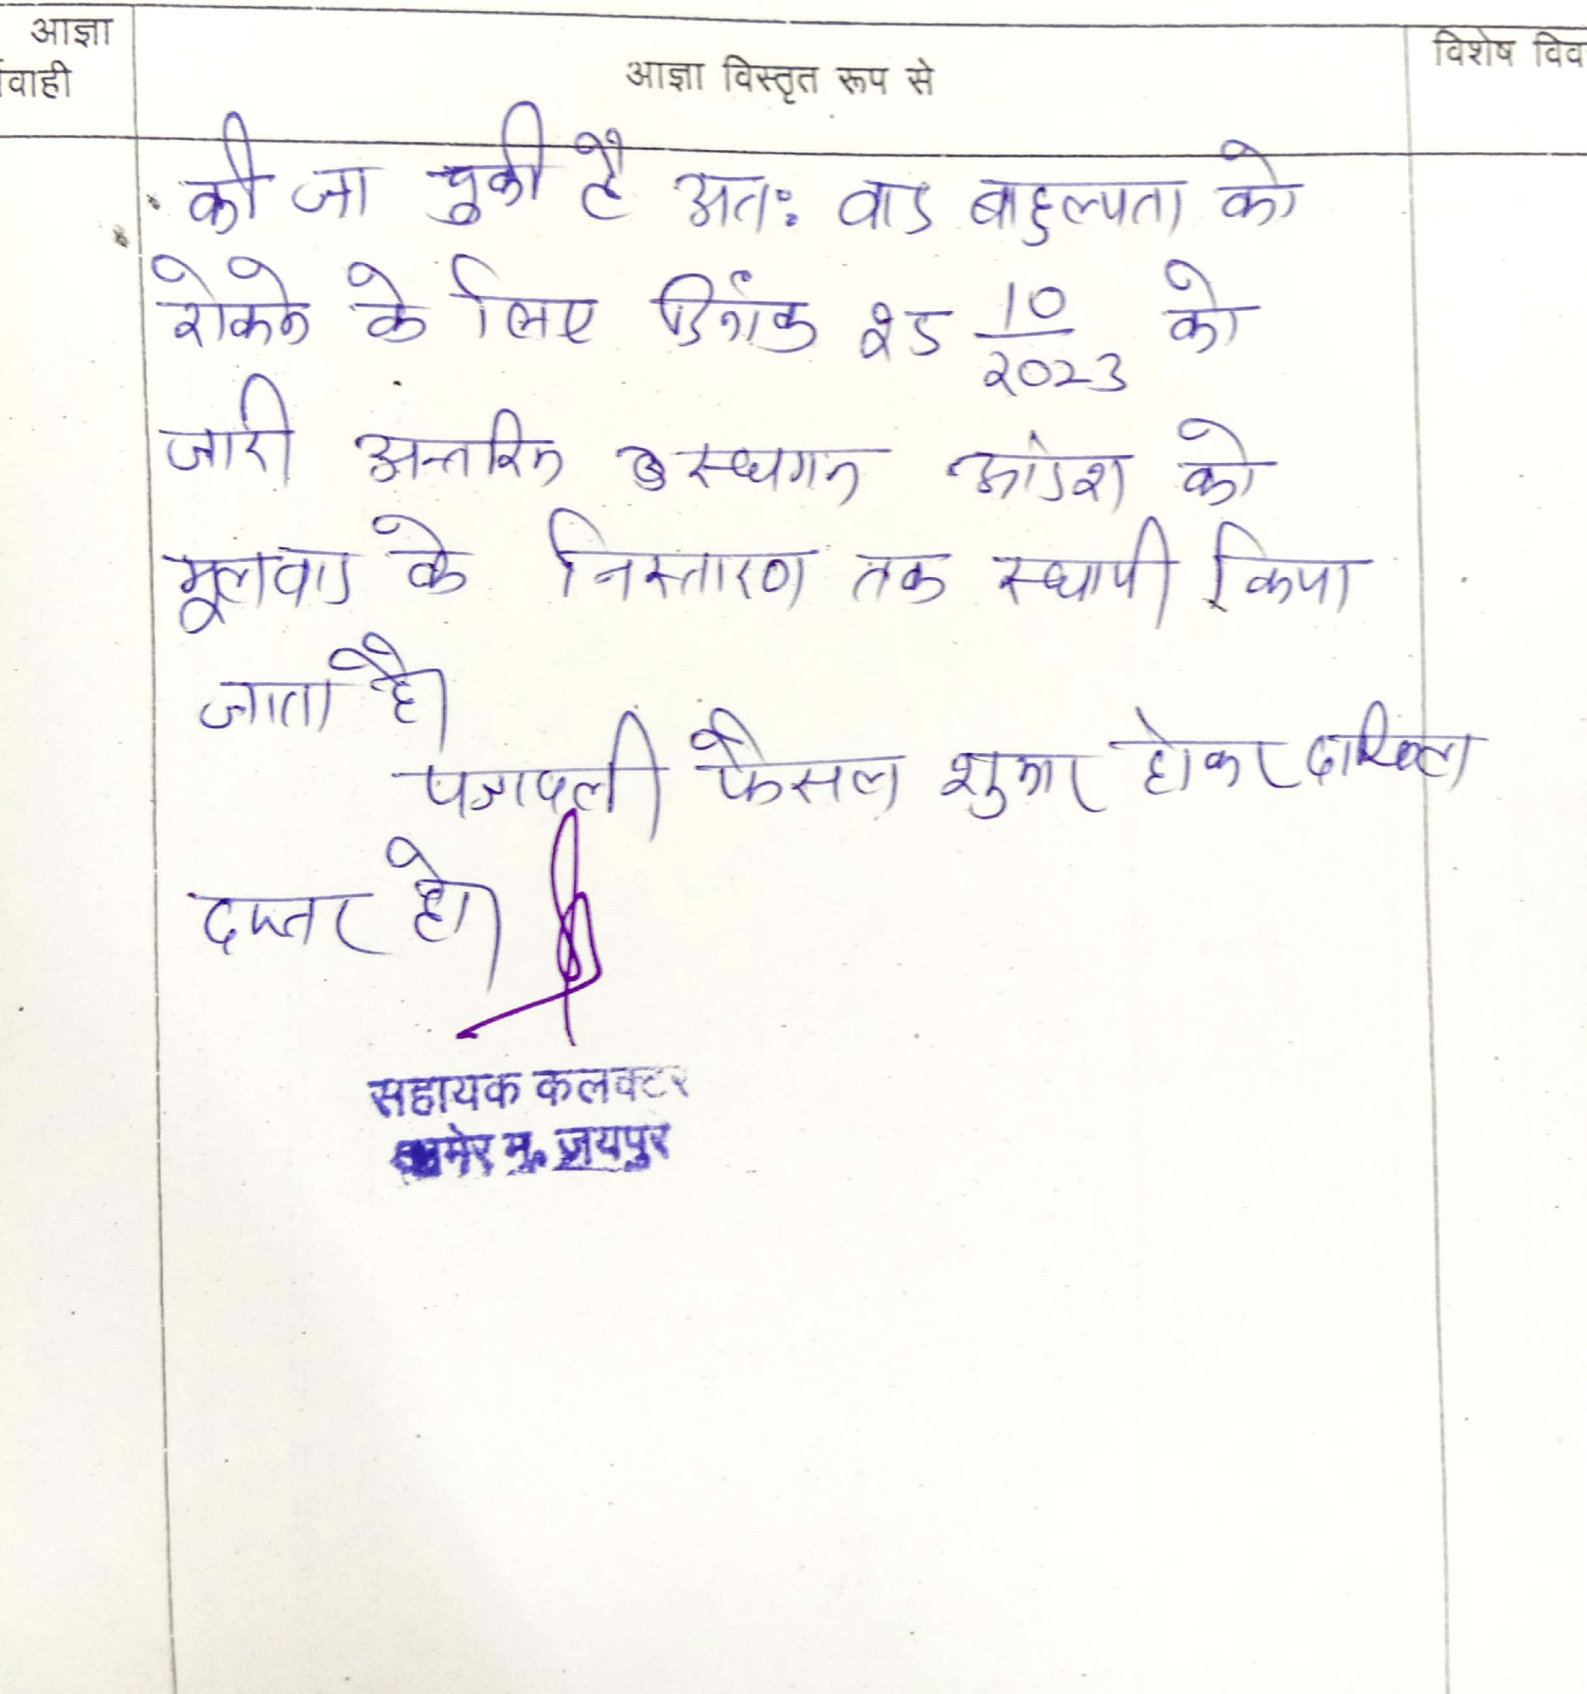 आज्ञा
वाही
आज्ञा विस्तृत रूप से
विशेष विव
की जा चुकी है अतः वाद बाहुल्यता को
रोकने के लिए दिनांक 25 10/2023 को
जारी अन्तरिम स्थगन आदेश को
मूलवाद के निस्तारण तक स्थायी किया
जाता है।
पत्रावली फैसल शुमार होकर दाखिल
दफ्तर हो।
सहायक कलक्टर
मेर मु. जयपुर